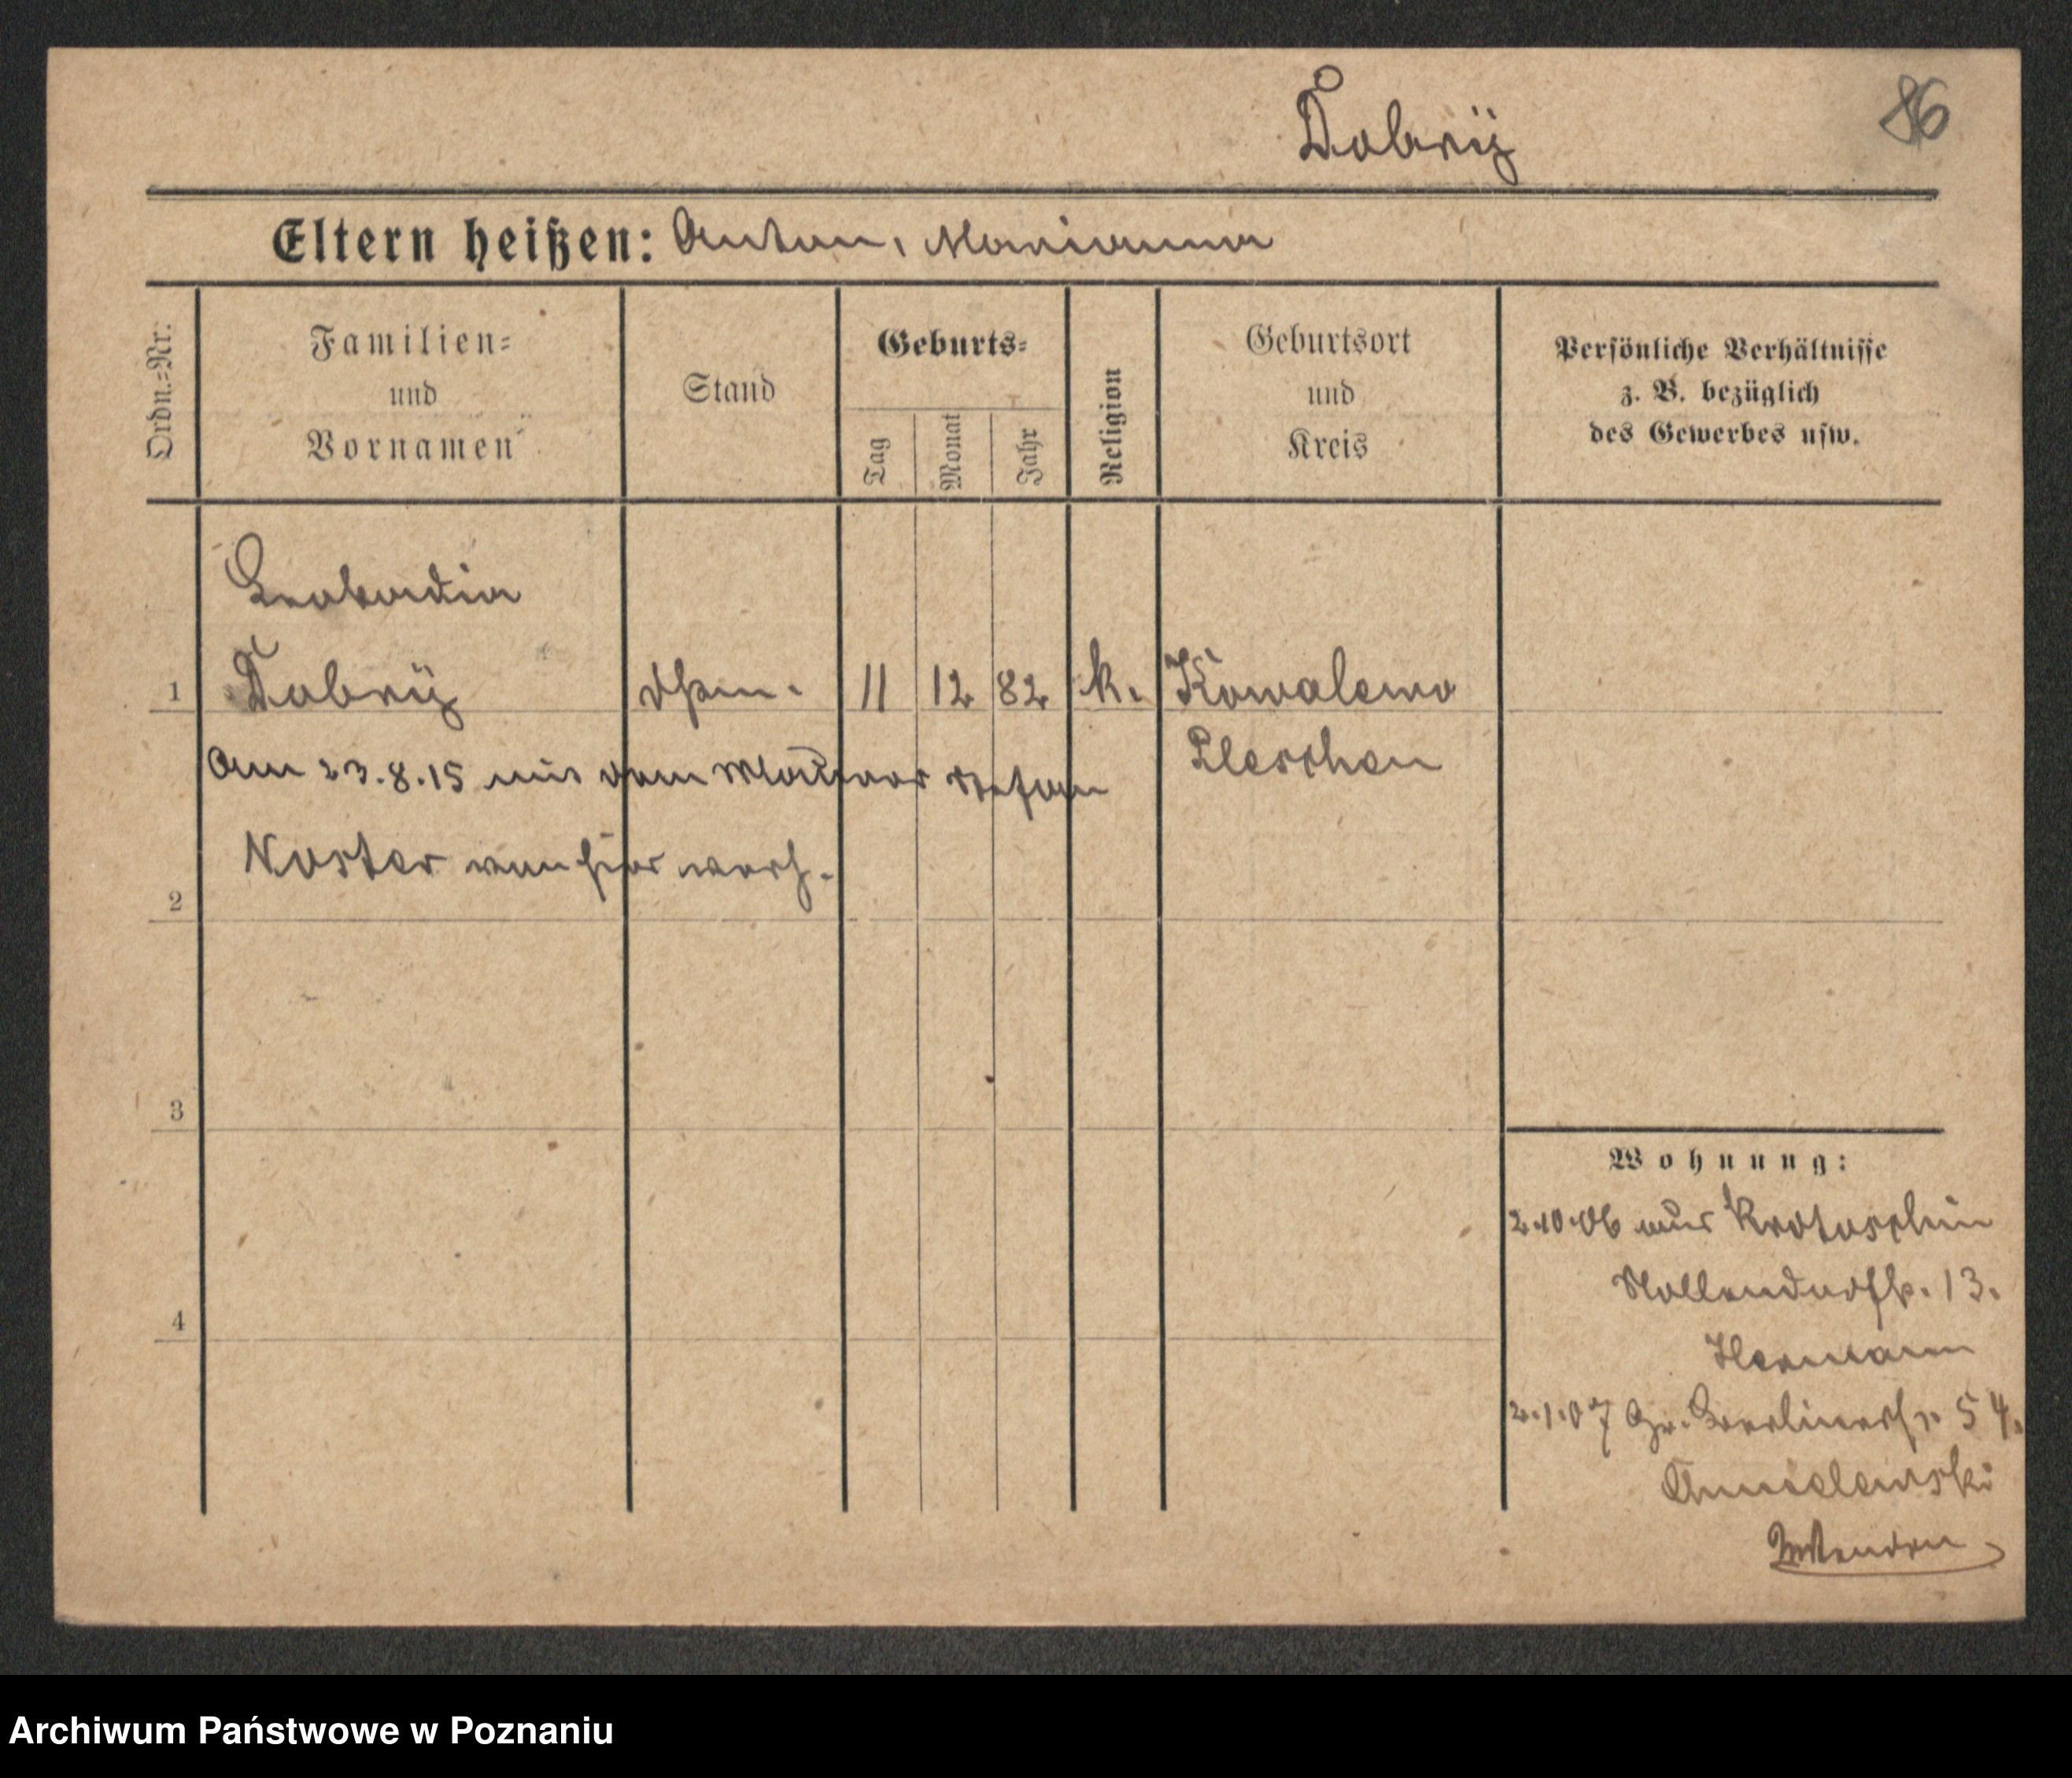 86
Dobrÿ
Eltern heißen: Anton, Marianna
Ordn.=Nr.
Familien=
und
Vornamen
Stand
Geburts=
Tag
Monat
Jahr
Religion
Geburtsort
und
Kreis
Persönliche Verhältnisse
z. B. bezüglich
des Gewerbes usw.
Leokardia
1 Dobrÿ 11 12 82 k. Kowalewo
Pleschen
Am 23.8.15 mit dem Stefan
Koster von hier verh.
2
3
4
Wohnung:
2.10.06 aus Krotoschin
Nollendorfstr. 13.
Hermann
2.1.07 Gr. Berlinerstr. 54.
Archiwum Państwowe w Poznaniu